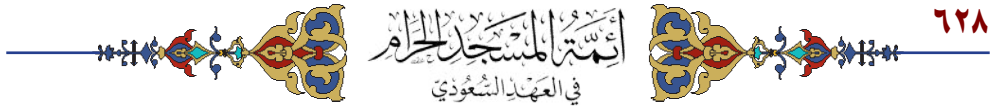 ٦٢٨
أَئِمَّةُ المَسْجِدِ الحَرَامِ
في العَهْدِ السُّعُودِيّ